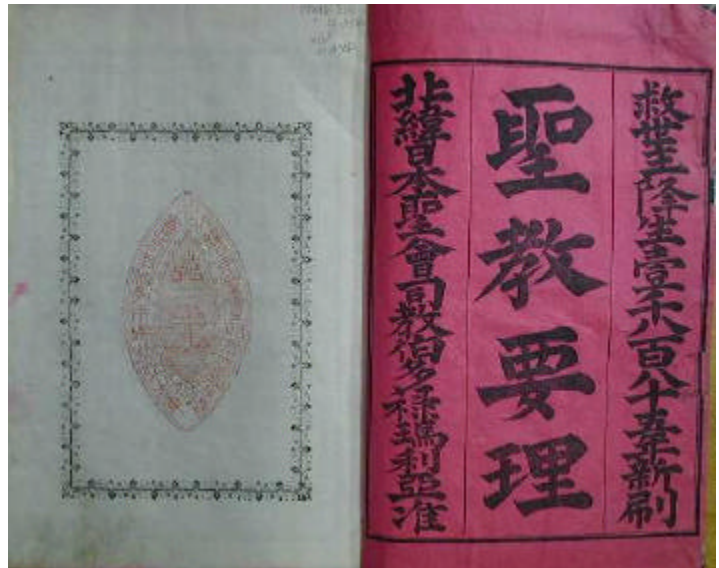 救世主降生壹千八百八十五年新刷
聖教要理
北緯日本聖會司教伯多祿瑪利亞准